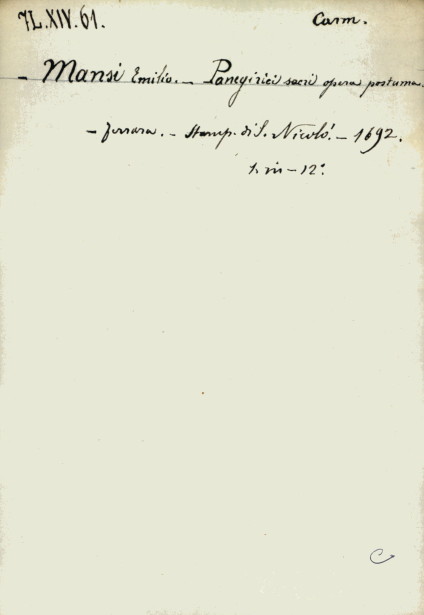 7L.XIV.61. Carm.
- Mansi Emilio. - Panegirici sacri opera postuma.
- Ferrara. - Stamp. di S. Nicoló. - 1692.
1. in - 12°.
C